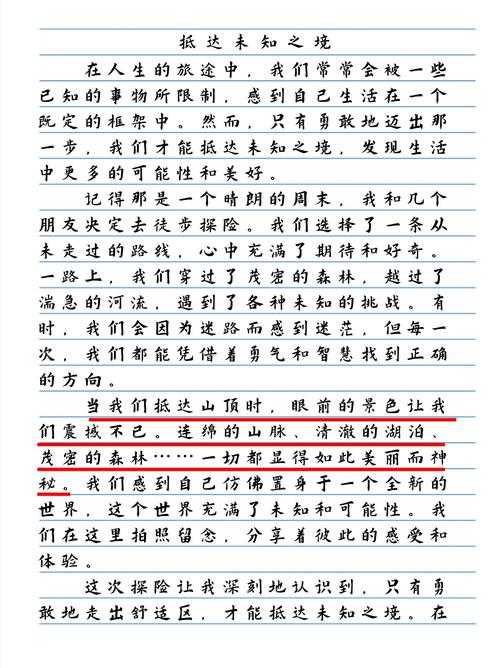 抵达未知之境
在人生的旅途中，我们常常会被一些
已知的事物所限制，感到自己生活在一个
既定的框架中。然而，只有勇敢地迈出那
一步，我们才能抵达未知之境，发现生活
中更多的可能性和美好。
记得那是一个晴朗的周末，我和几个
朋友决定去徒步探险。我们选择了一条从
未走过的路线，心中充满了期待和好奇。
一路上，我们穿过了茂密的森林，越过了
湍急的河流，遇到了各种未知的挑战。有
时，我们会因为迷路而感到迷茫，但每一
次，我们都能凭借着勇气和智慧找到正确
的方向。
当我们抵达山顶时，眼前的景色让我
们震撼不已。连绵的山脉、清澈的湖泊、
茂密的森林……一切都显得如此美丽而神
秘。我们感到自己仿佛置身于一个全新的
世界，这个世界充满了未知和可能性。我
们在这里拍照留念，分享着彼此的感受和
体验。
这次探险让我深刻地认识到，只有勇
敢地走出舒适区，才能抵达未知之境。在